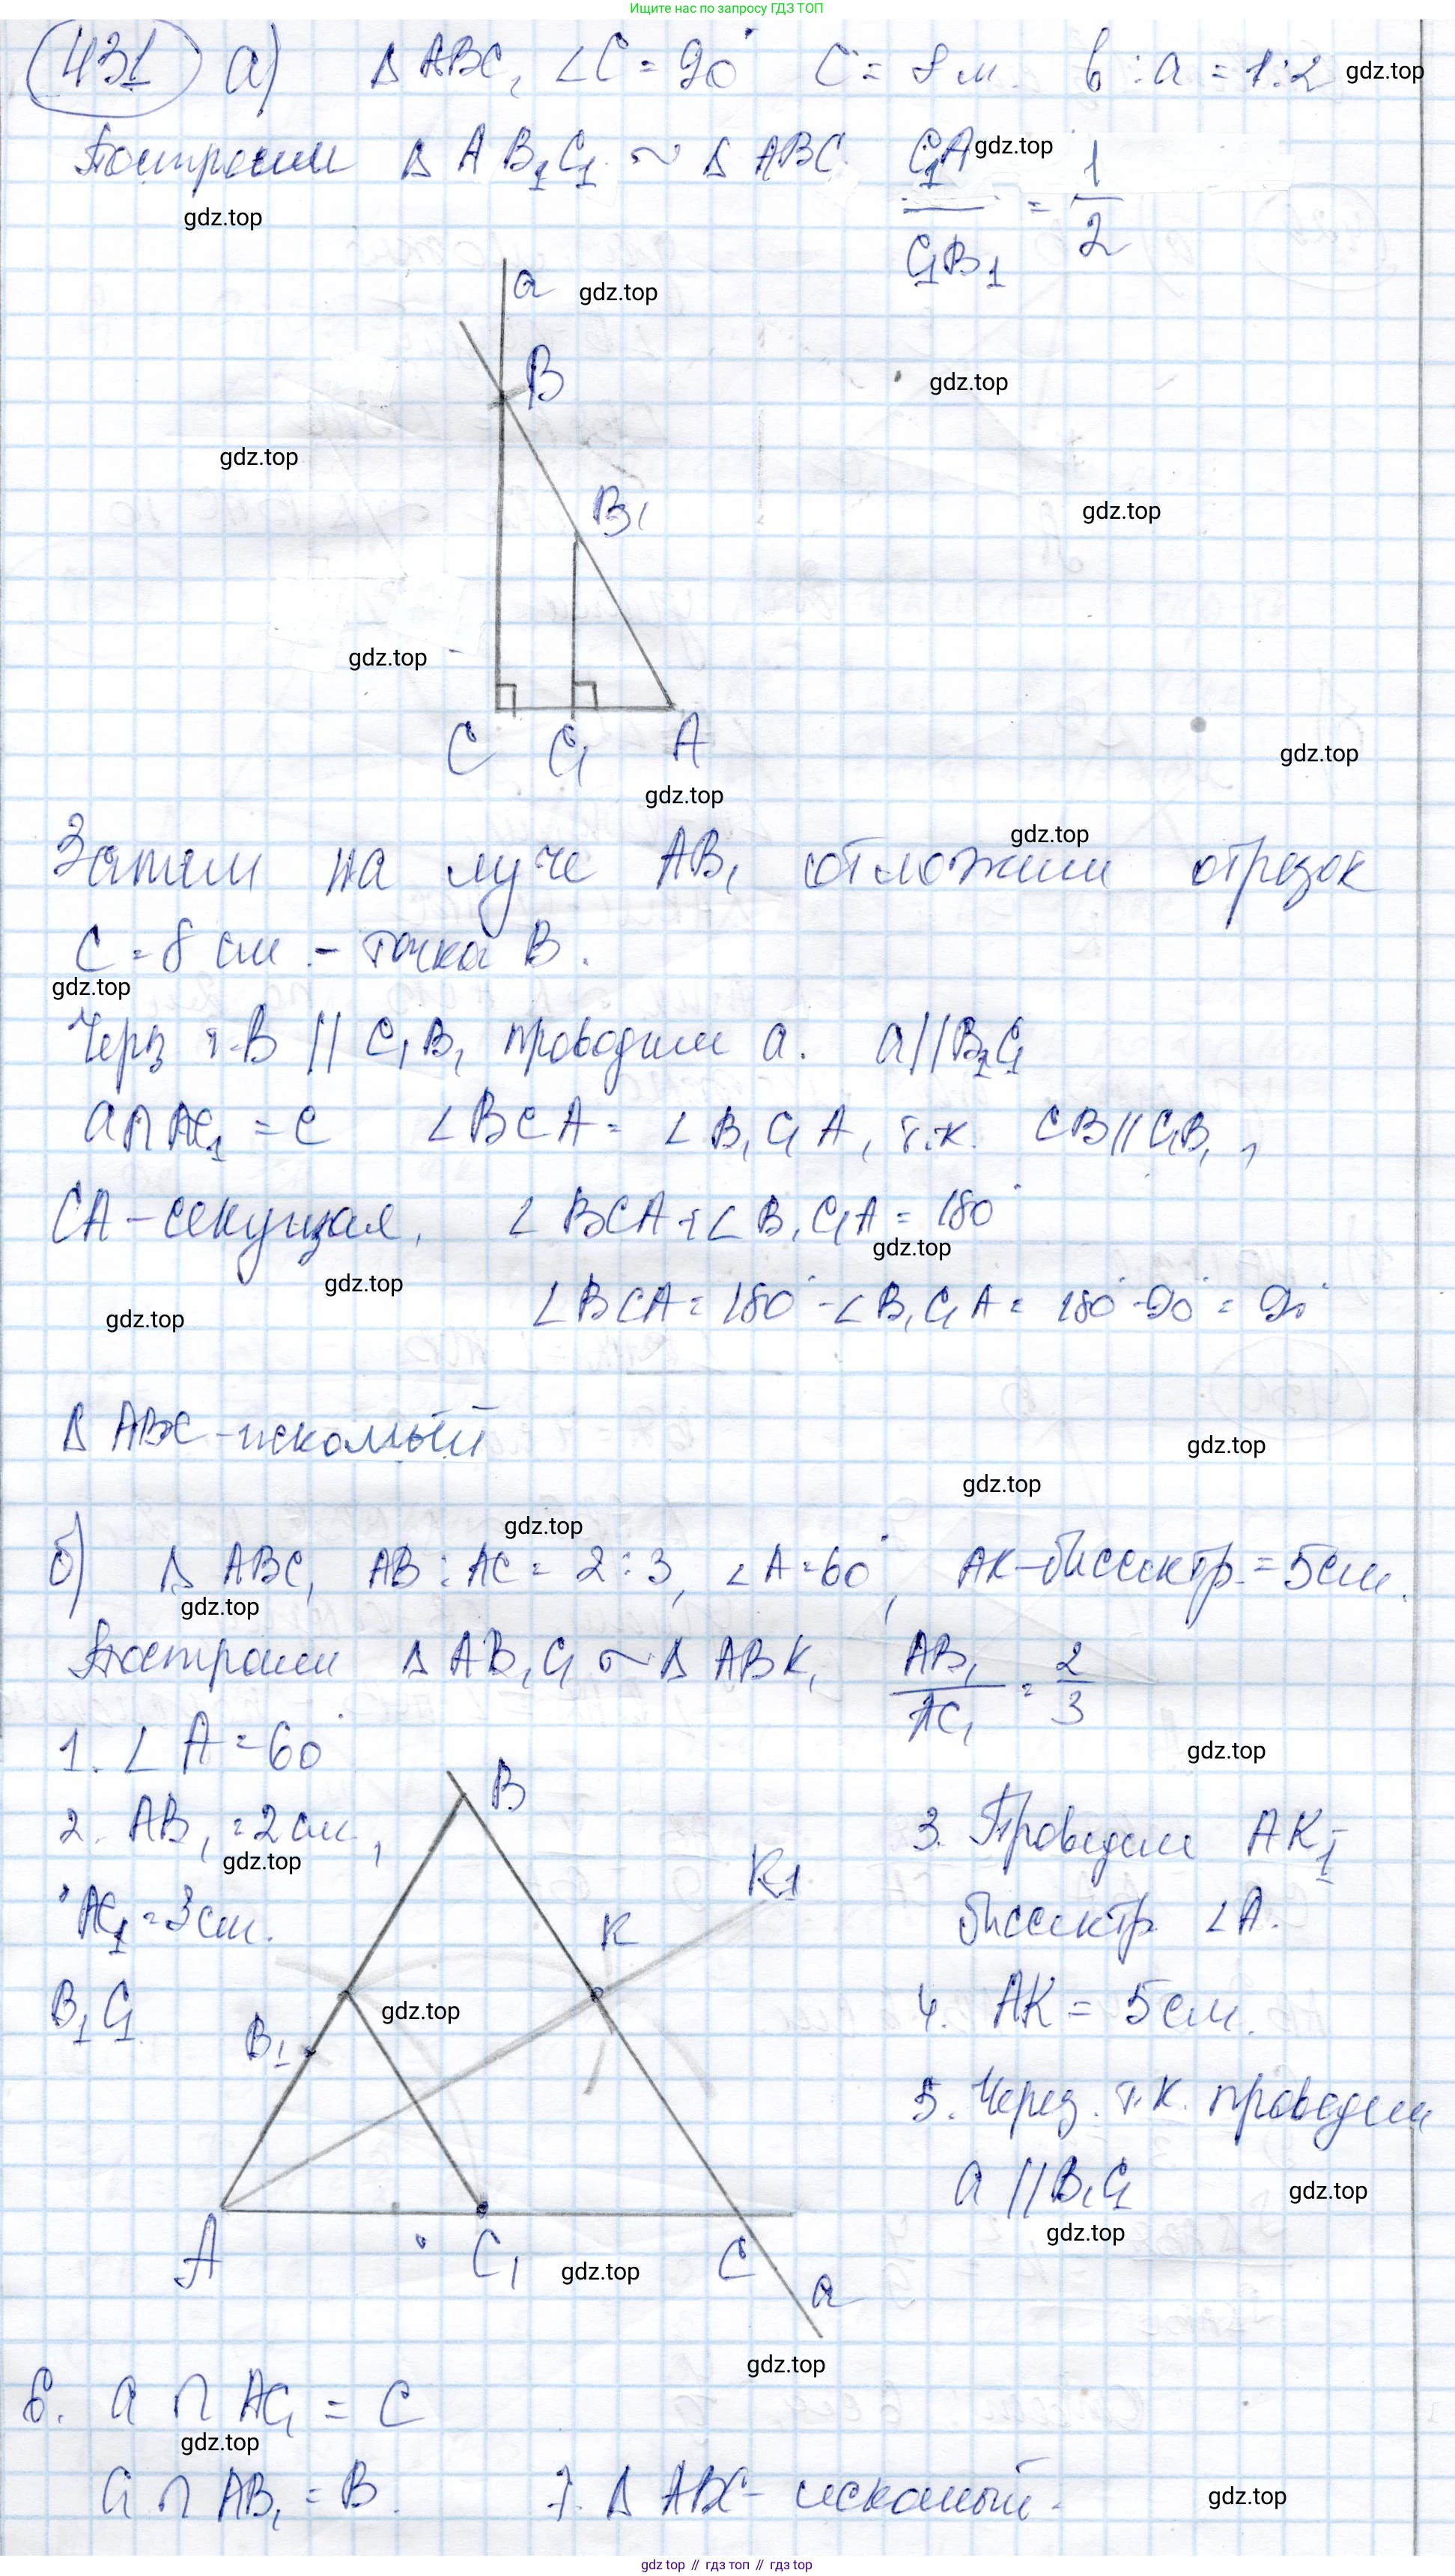 Ищите нас по запросу ГДЗ ТОП
431 а) Δ ABC, ∠C = 90° C = 8 м. b : a = 1:2 gdz.top
Построим Δ AB₁C₁ ~ Δ ABC. C₁A / C₁B₁ = 1/2 gdz.top
gdz.top
a gdz.top
B gdz.top
gdz.top
B₁ gdz.top
gdz.top
C C₁ A
gdz.top
gdz.top
gdz.top
Затем на луче AB₁ отложим отрезок
C = 8 см - точка B.
gdz.top
Через т. B || C₁B₁ проводим a. a||B₁C₁
a∩AC₁ = C ∠BCA = ∠B₁C₁A, т.к. CB||C₁B₁,
CA - секущая, ∠BCA + ∠B₁C₁A = 180°
gdz.top
gdz.top
∠BCA = 180° - ∠B₁C₁A = 180° - 90° = 90°
gdz.top
Δ ABC - искомый
gdz.top
gdz.top
gdz.top
б) Δ ABC, AB : AC = 2 : 3, ∠A = 60°, AK - биссектр. = 5 см.
gdz.top
Построим Δ AB₁C₁ ~ Δ ABK, AB₁ / AC₁ = 2/3
1. ∠A = 60°
gdz.top
B
2. AB₁ = 2 см,
gdz.top
AC₁ = 3 см.
B₁C₁
K₁
K
gdz.top
B₁
A C₁ C
gdz.top
a
3. Проведем AK₁ -
биссектр. ∠A.
4. AK = 5 см.
5. Через т. K. проведем
a || B₁C₁
gdz.top
gdz.top
gdz.top
6. a ∩ AC₁ = C
gdz.top
a ∩ AB₁ = B. 7. Δ ABC - искомый.
gdz.top
gdz.top // гдз топ // gdz.top